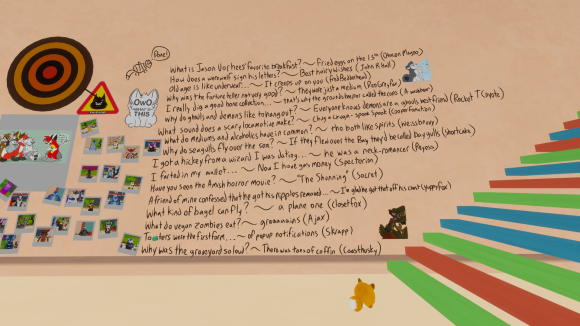 Done!
OwO
WHAT'S
THIS
What is Jason Vorhees' favorite breakfast? ~ Fried eggs on the 13th (Deacon Mageo)
How does a werewolf sign his letters? ~ Best hairy wishes (John R. Wolf)
Old age is like underwear... ~ It creeps up on you (Fed Bedderhead)
Why was the fortune teller not very good? ~ They were just a medium (PenGreyFox)
I really dig a good bone collection... ~ that's why the groundskeeper called the cops (A weasbear)
Why do ghouls and demons like to hang out? ~ Everyone knows demons are a ghouls best friend (Rocket T Coyote)
What sound does a scary locomotive make? ~ Choo a Choo - spook spook (CooperFonction)
What do mediums and alcoholics have in common? ~ They both like spirits (Weissbrau)
Why do seagulls fly over the sea? ~ If they flew over the Bay they'd be called Bay gulls (Shortcake)
I got a hickey from a wizard I was dating... ~ he was a neck-romancer (Pegess)
I farted in my wallet... ~ Now I have gas money (Spectorion)
Have you seen the Amish horror movie? ~ "The Shunning" (Socret)
A friend of mine confessed that he got his nipples removed... ~ I'm glad he got that off his chest (yappsfox)
What kind of bagel can fly? ~ a plane one (closetfox)
What do vegan zombies eat? ~ graaaaains (Ajax)
Toasters were the first form... ~ of popup notifications (Skrapp)
Why was the graveyard so loud? ~ There was tons of coffin (Coasthusky)